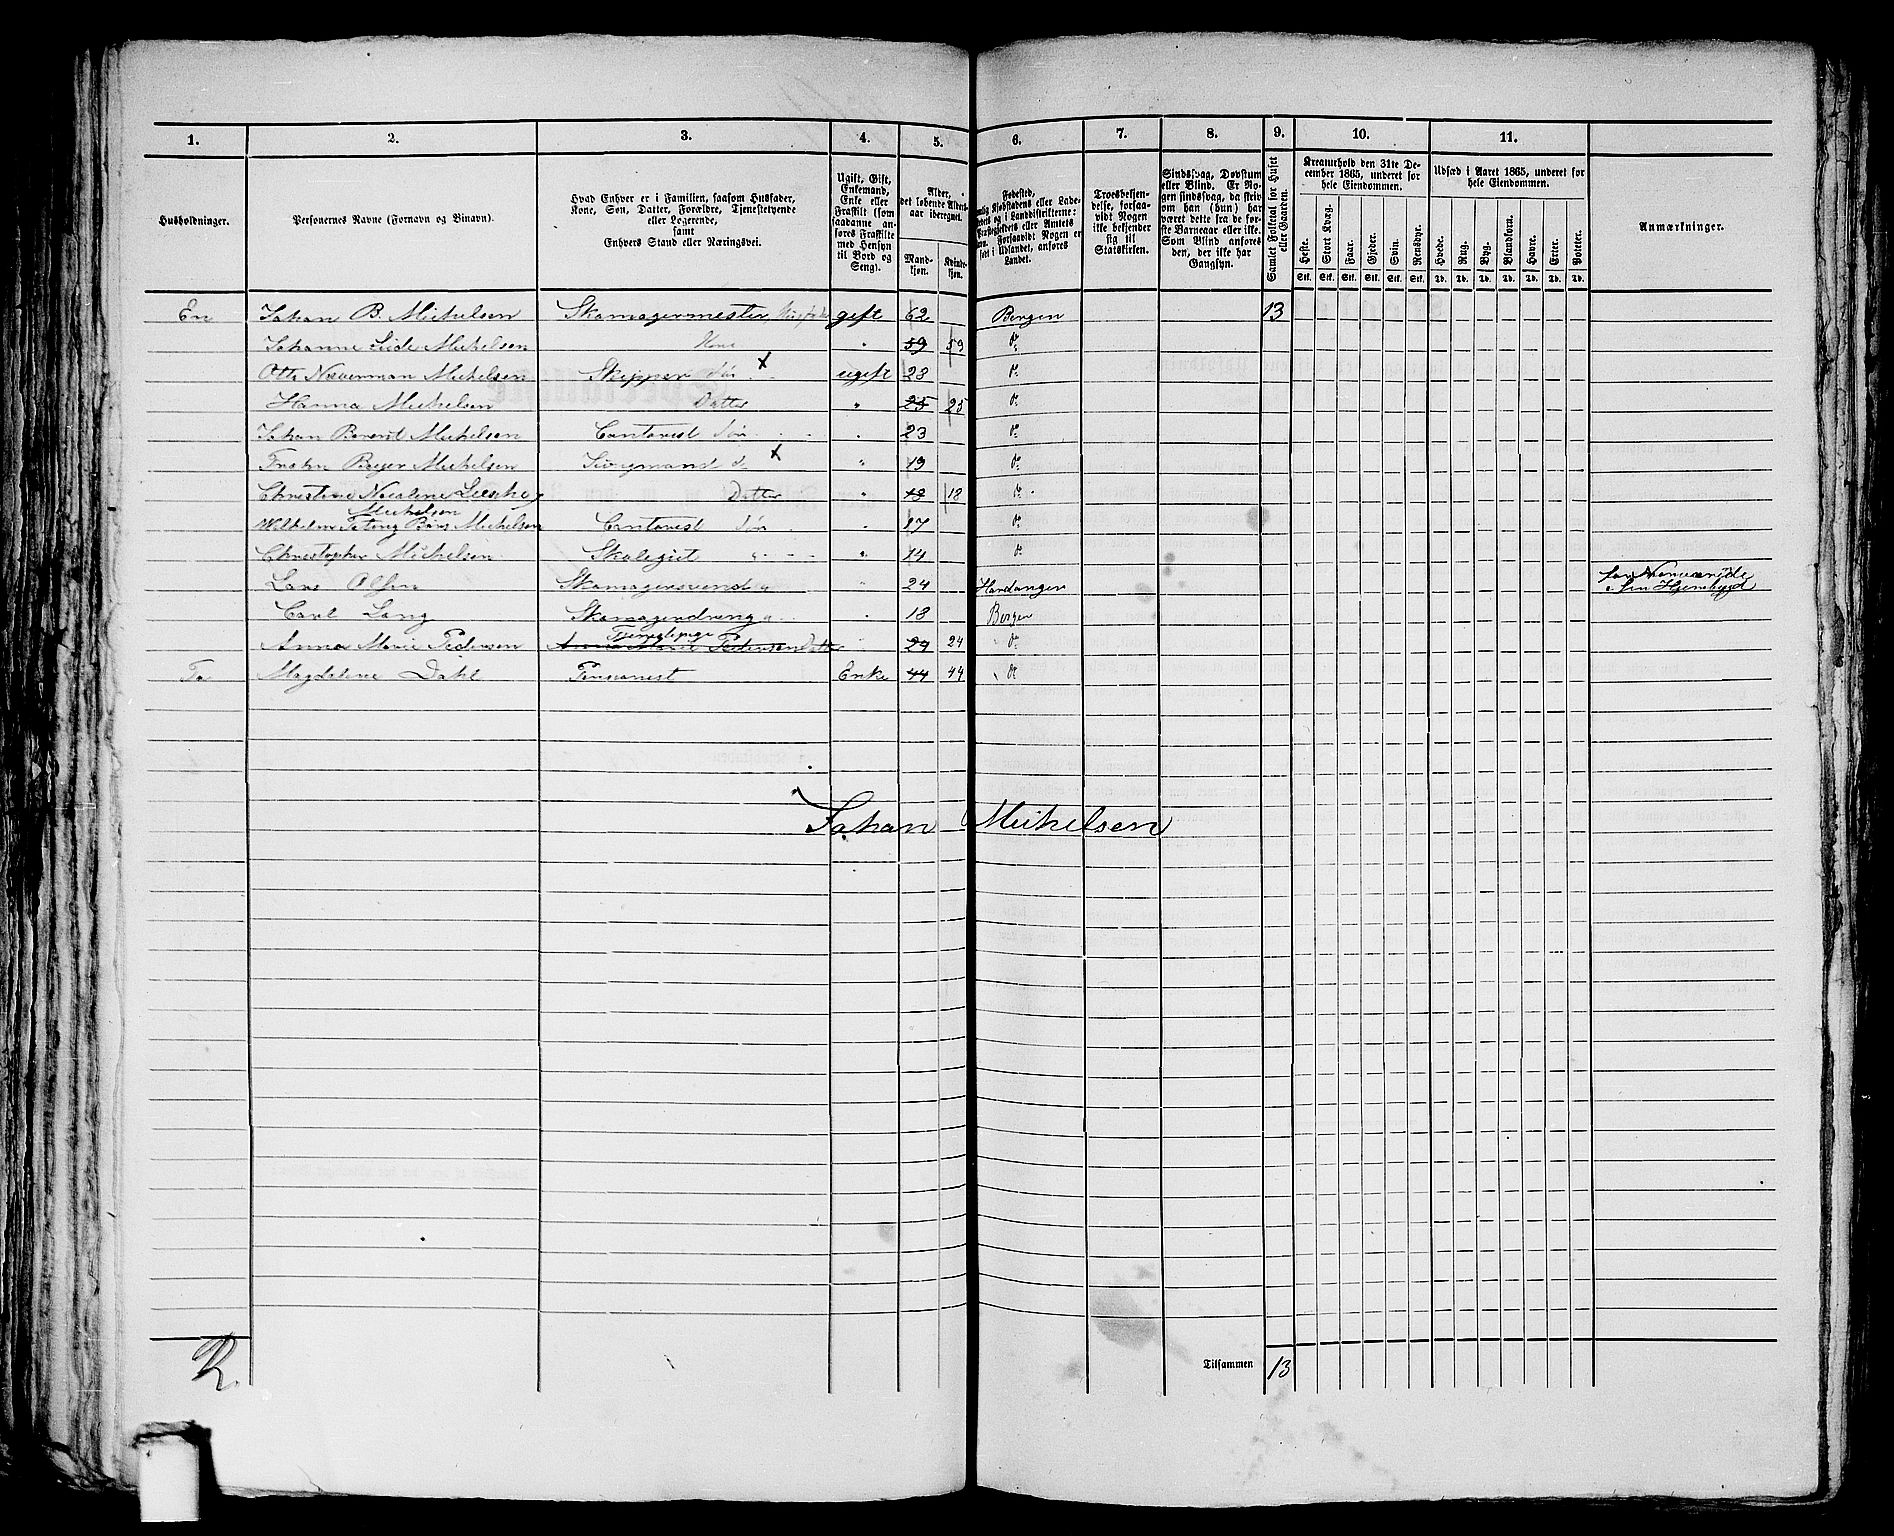 1. 2. 3. 4. 5. 6. 7. 8. 9. 10. 11.
Husholdninger.
Personernes Navne (Fornavn og Binavn).
Hvad Enhver er i Familien, saasom Husfader,
Kone, Søn, Datter, Forældre, Tjenestetyende
eller Logerende,
samt
Enhvers Stand eller Næringsvei.
Ugift, Gift,
Enkemand,
Enke eller
Fraskilt (som
saadanne an-
føres Fraskilte
med Hensyn
til Bord og
Seng).
Alder,
det løbende Alders-
aar iberegnet.
Mand-
kjøn.
Kvinde-
kjøn.
Fødested,
Kjøbstadens eller Lade-
og i Landdistrikterne:
Præstegjældets eller Amtets
Navn. Forsaavidt Nogen er
født i Udlandet, anføres
Landet.
Troesbekjen-
delse, forsaa-
vidt Nogen
ikke bekjender
sig til
Statskirken.
Sindssvag, Døvstum
eller Blind. Er No-
gen sindssvag, da skriv
om han (hun) har
været dette fra de før-
ste Barneaar eller ikke.
Som Blind anføres
den, der ikke har
Gangsyn.
Samlet Folketal for Huset
eller Gaarden.
Kreaturhold den 31te De-
cember 1865, underet for
hele Eiendommen.
Heste. Stort Kvæg. Faar. Gjeder. Svin. Rensdyr.
Stk. Stk. Stk. Stk. Stk. Stk.
Udsæd i Aaret 1865, underet for
hele Eiendommen.
Hvede. Rug. Byg. Blandkorn. Havre. Erter. Poteter.
Td. Td. Td. Td. Td. Td. Td.
Anmærkninger.
En Johan B. Michelsen Skomagermester, Husfader gift 62 Bergen 13
Johanne Michelsen Kone " 59 59 do
Otto Michelsen Skipper Søn x ugift 28 do
Hanna Michelsen Datter " 25 25 do
Johan Berent Michelsen Contorist Søn " 23 do
Beyer Michelsen x " 19 do
Christine Datter " 18 18 do
Michelsen
Michelsen Contorist Søn " 17 do
Christopher Michelsen Skolegut " " 14 do
Lars Olsen Skomagersvend " 24 Hardanger
Carl Lang Skomagerdreng " 18 Bergen
Anna Marie Pedersen Tjenestepige " 24 24 do
Anna Marie Pedersen Datter
To Magdalene Dahl Enke 44 44 do
Johan Michelsen
Tilsammen 13